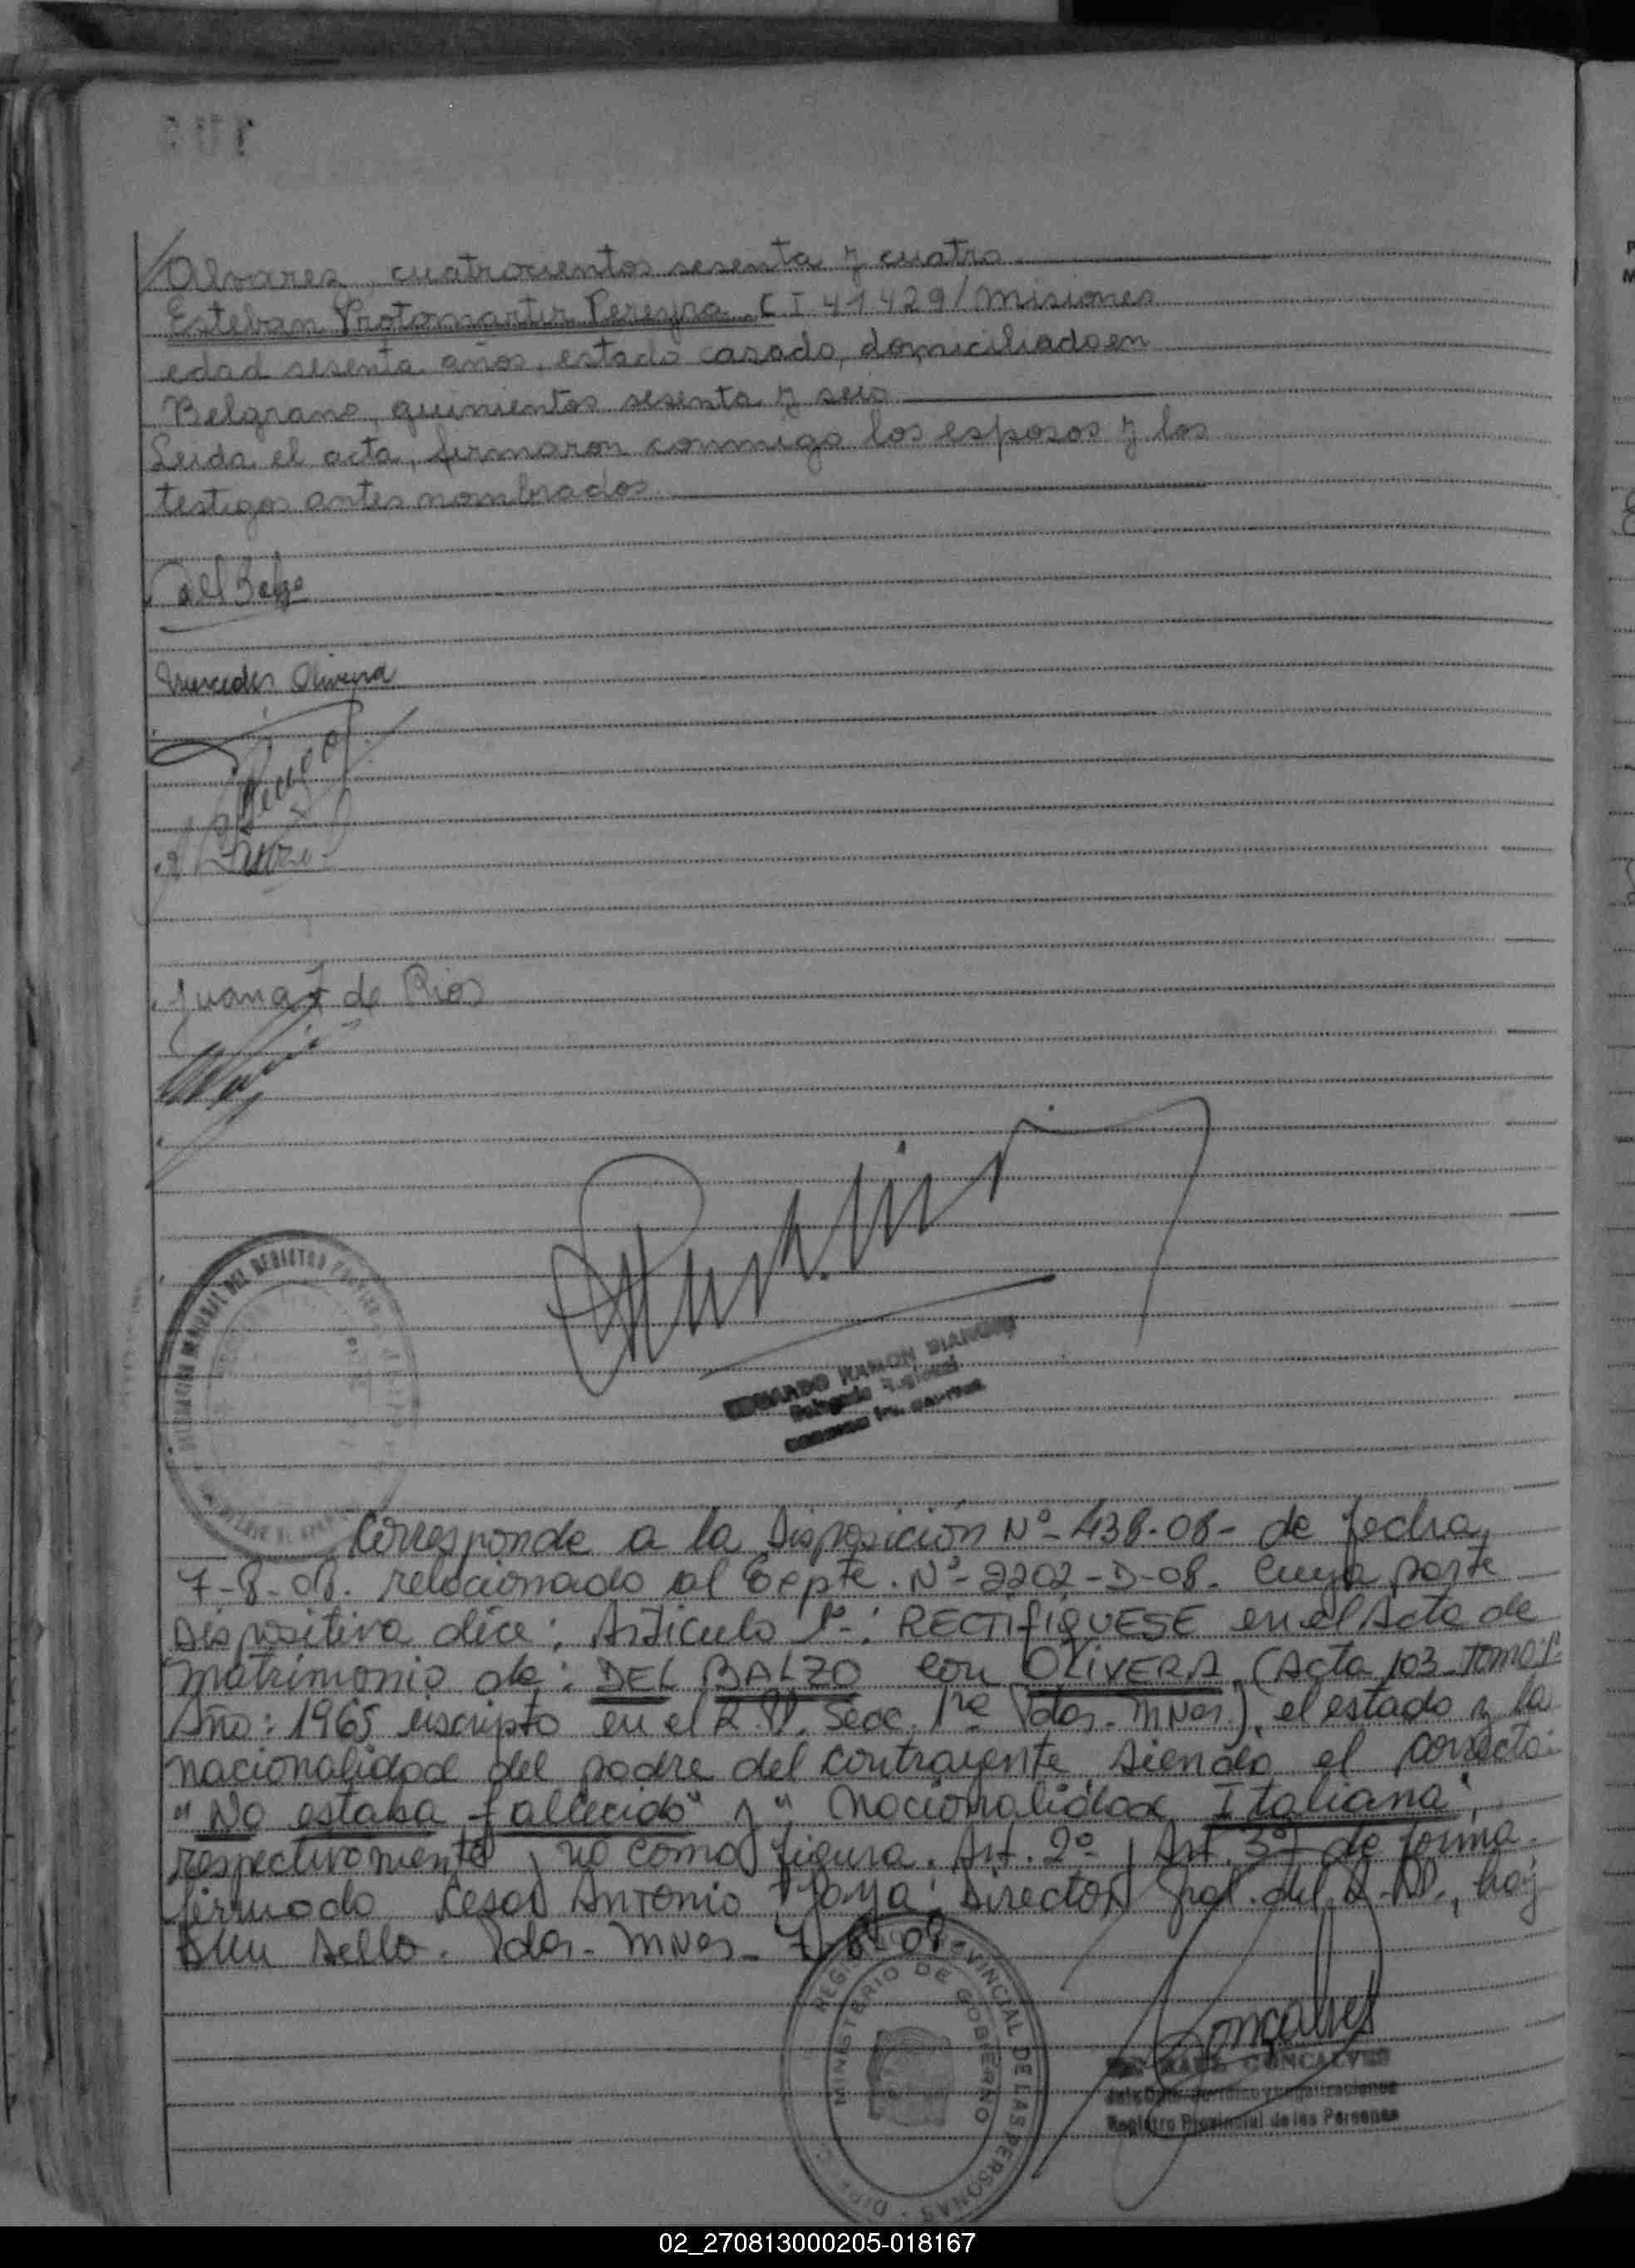 Alvarez, cuatrocientos sesenta y cuatro
Esteban Protomartir Pereyra. C I 41429/Misiones
edad sesenta años, estado casado, domiciliado en
Belgrano, quinientos sesenta y seis
Leida el acta, firmaron conmigo los esposos y los
testigos antes nombrados.
del Balzo
Mercedes Olivera
Juana F de Rios
RAMON
Corresponde a la Disposición Nº- 438-08- de fecha
7-8-08. relacionado al Expte. Nº- 2202-D-08. Cuya parte
Dispositiva dice: Articulo 1º-: RECTIFIQUESE en el Acta de
Matrimonio de: DEL BALZO con OLIVERA (Acta 103-Tomo 1º
Año: 1965 inscripto en el R.P. Secc. 1ra Pdas. Mnes.), el estado y la
nacionalidad del padre del contrayente siendo el correcto:
"No estaba fallecido" y "nacionalidad Italiana",
respectivamente y no como figura. Art. 2º y Art. 3º de forma.
firmado Cesar Antonio Director Gral. del R.P., hay
un sello. Pdas. Mnes. 7-8-08-
REGISTRO PROVINCIAL DE LAS PERSONAS
MINISTERIO DE GOBIERNO
Goncalves
GONCALVES
Registro Provincial de las Personas
02_270813000205-018167